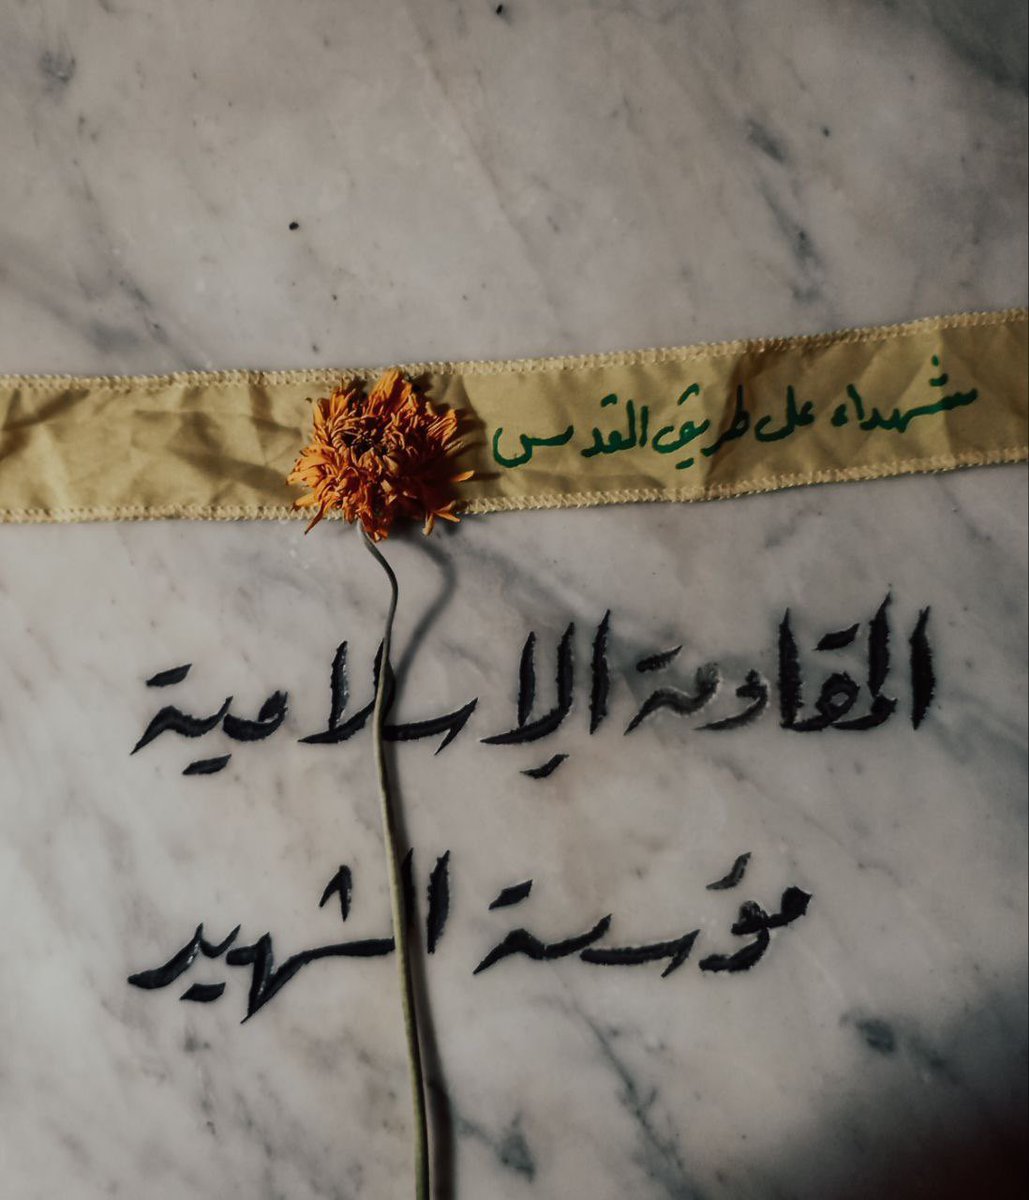 شهداء على طريق القدس
المقاومة الإسلامية
مؤسسة الشهيد